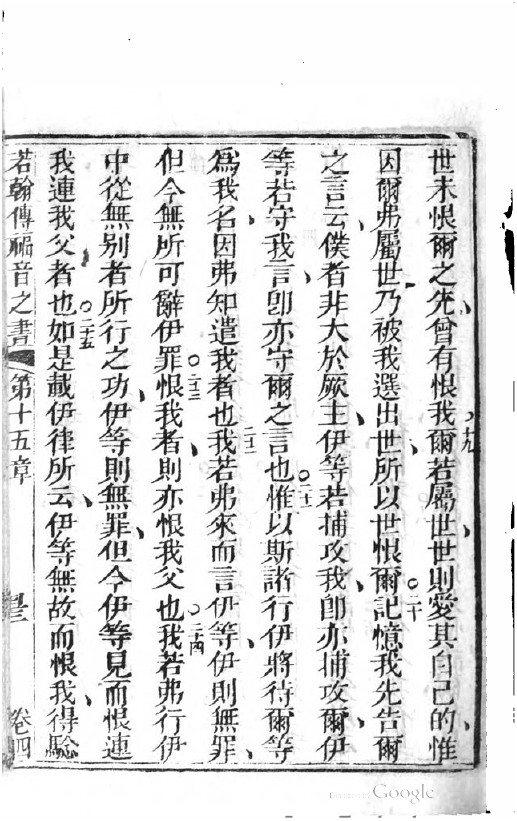 世未恨爾之先曾有恨我爾若屬世世則愛其自己的惟
十九
因爾弗屬世乃被我選出世所以世恨爾記憶我先告爾
二十
之言云僕者非大於厥主伊等若捕攻我卽亦捕攻爾伊
等若守我言卽亦守爾之言也惟以斯諸行伊將待爾等
二一
爲我名因弗知遣我者也我若弗來而言伊等伊則無罪
二二
但今無所可辭伊罪恨我者則亦恨我父也我若弗行伊
二三
二四
中從無别者所行之功伊等則無罪但今伊等見而恨連
我連我父者也如是載伊律所云伊等無故而恨我得騐
二五
若翰傳福音之書 第十五章 卷四
Digitized by Google